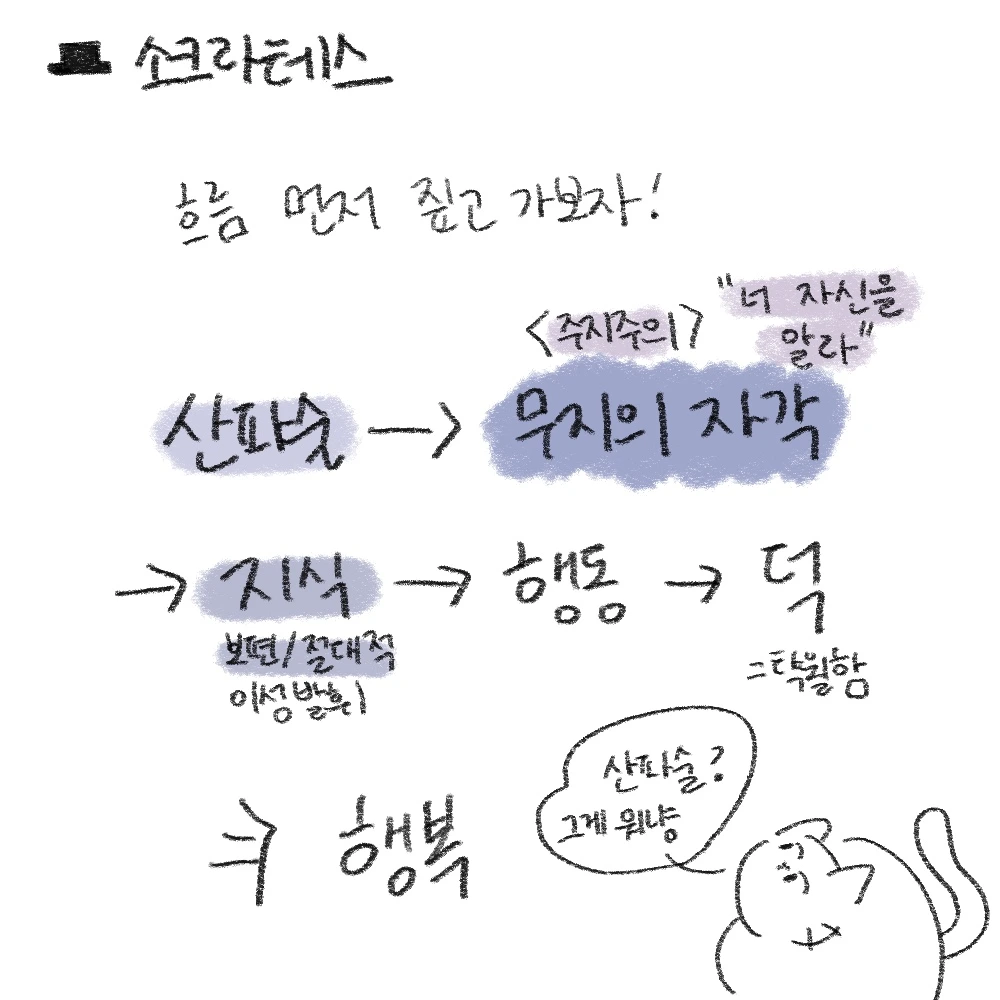 소크라테스
흐름 먼저 짚고 가보자!
"너 자신을
알라"
<주지주의>
산파술 → 무지의 자각
→ 지식 → 행동 → 덕
보편/절대적
이성발휘
=탁월함
⇒ 행복
산파술?
그게 뭐냥